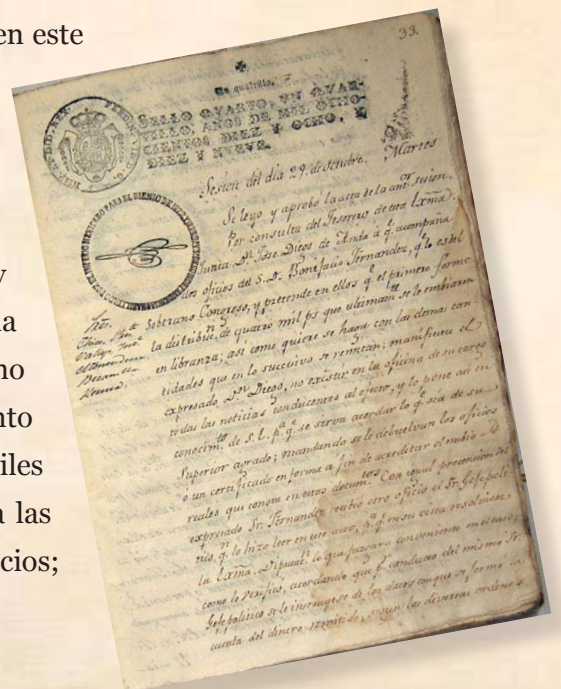 en este
y
a
no
nto
iles
a las
cios;
33.
Un quartillo.
SELLO QVARTO, VN QVAR-
TILLO, AÑOS DE MIL OCHO-
CIENTOS DIEZ Y OCHO, Y
DIEZ Y NUEVE.
Sesion del dia 29. de octubre. Martes
Se leyo y aprobó la acta de la antor. sesion.
Por consulta del Tesorero de esta Exma.
Junta Dn. Jose Diego de Anda á q. acompaña
dos oficios del S. D. Bonifacio Fernandez, q. lo es del
Soberano Congreso, y pretende en ellos q. el primero forme
la distribun. de quatro mil ps que ultimamte. se le embiaron
en libranza; asi como quiere se haga con las demas can-
tidades que en lo succesivo se remitan; manifiesta el
expresado Dn. Diego, no existir en la oficina de su cargo
todas las noticias conducentes al efecto, y lo pone asi en
conocimto. de S. E. pa. q. se sirva acordar lo q. sea de su
Superior agrado; mandando se le debuelvan los oficios
ó un certificado en forma a fin de acreditar el embio D
reales que consta en estos documtos. Con igual precension del
expresado Sr. Fernandez recibió otro oficio el Sr. Gefe poli
tico, q. lo hizo leer en este acto, pa. q. en su vista resolviese
la Exma. Diputan. lo que pareciera conveniente en el caso;
como lo verificó, acordando que pr. conducto del mismo Sr.
Gefe politico se le instruyese de los datos conque se forme la
cuenta del dinero remitido, segun las diversas ordenes